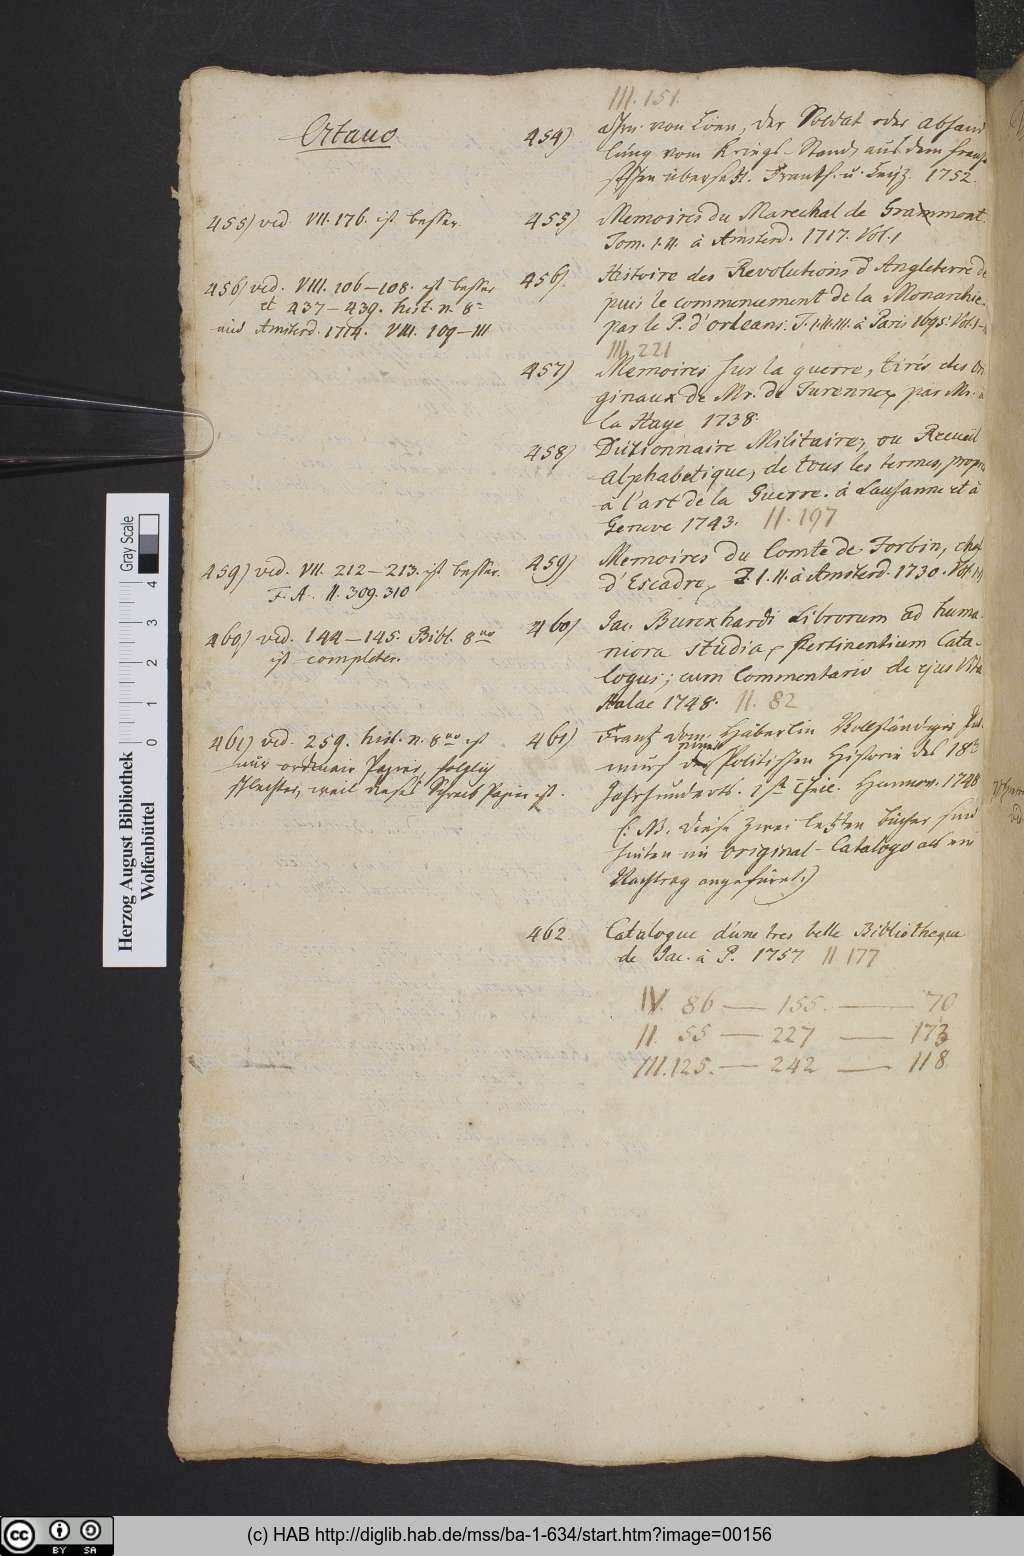 Octavo
455) ved. VII. 176. ist besser.
456) ved. VIII. 106–108. ist besser
et 437–439. hist. n. 8º
Amsterd. 1714. VIII. 109–111
459) ved. VII. 212–213. ist besser.
F. A. II. 309. 310
460) ved. 144–145. Bibl. 8vo
ist completer.
461) ved. 259. hist. n. 8vo ist
nur ordinair Papier, folglich
schlechter, weil dieses Schreib Papier ist.
III. 151.
454) von Loen, der Soldat oder Abhand
lung vom Kriegs-Stand, aus dem franzö
sischen übersetzt. Frankf. u. Leipz. 1752.
455) Memoires du Marechal de Grammont.
Tom. I. II. à Amsterd. 1717. Vol. 1
456) Histoire des Revolutions d'Angleterre de
puis le commencement de la Monarchie.
par le P. d'orleans. T. I. II. III. à Paris 1695. Vol. 1–
III. 221
457) Memoires sur la guerre, tirés des Ori
ginaux de Mr. de Turenne, par Mr.
la Haye 1738.
458) Dictionnaire Militaire, ou Recueil
alphabetique, de tous les termes, propr
à l'art de la Guerre. à Lausanne et à
Geneve 1743. II. 197
459) Memoires du Comte de Forbin, chef
d'Escadre, T. I. II. à Amsterd. 1730. Vol. 1
460) Jac. Burckhardi Librorum ad huma-
niora studia, pertinentium Cata-
logus; cum Commentario de ejus Vita
Halae 1748. II. 82
461) Frantz Dom. Häberlin Vollständiger Ent
wurf einer Politischen Historie des 18ten
Jahrhunderts. 1ster Theil. Hannov. 1748
(: NB. diese zwei letzten bücher sind
hinten im Original-Catalogo als ein
Nachtrag angeführet.)
462 Catalogue d'une tres belle Bibliotheque
de Jac. à P. 1757 II 177
IV. 86 — 155. — 70
II. 55 — 227 — 173
III. 125. — 242 — 118
Gray Scale
4
3
2
1
0
Herzog August Bibliothek
Wolfenbüttel
cc BY SA
(c) HAB http://diglib.hab.de/mss/ba-1-634/start.htm?image=00156